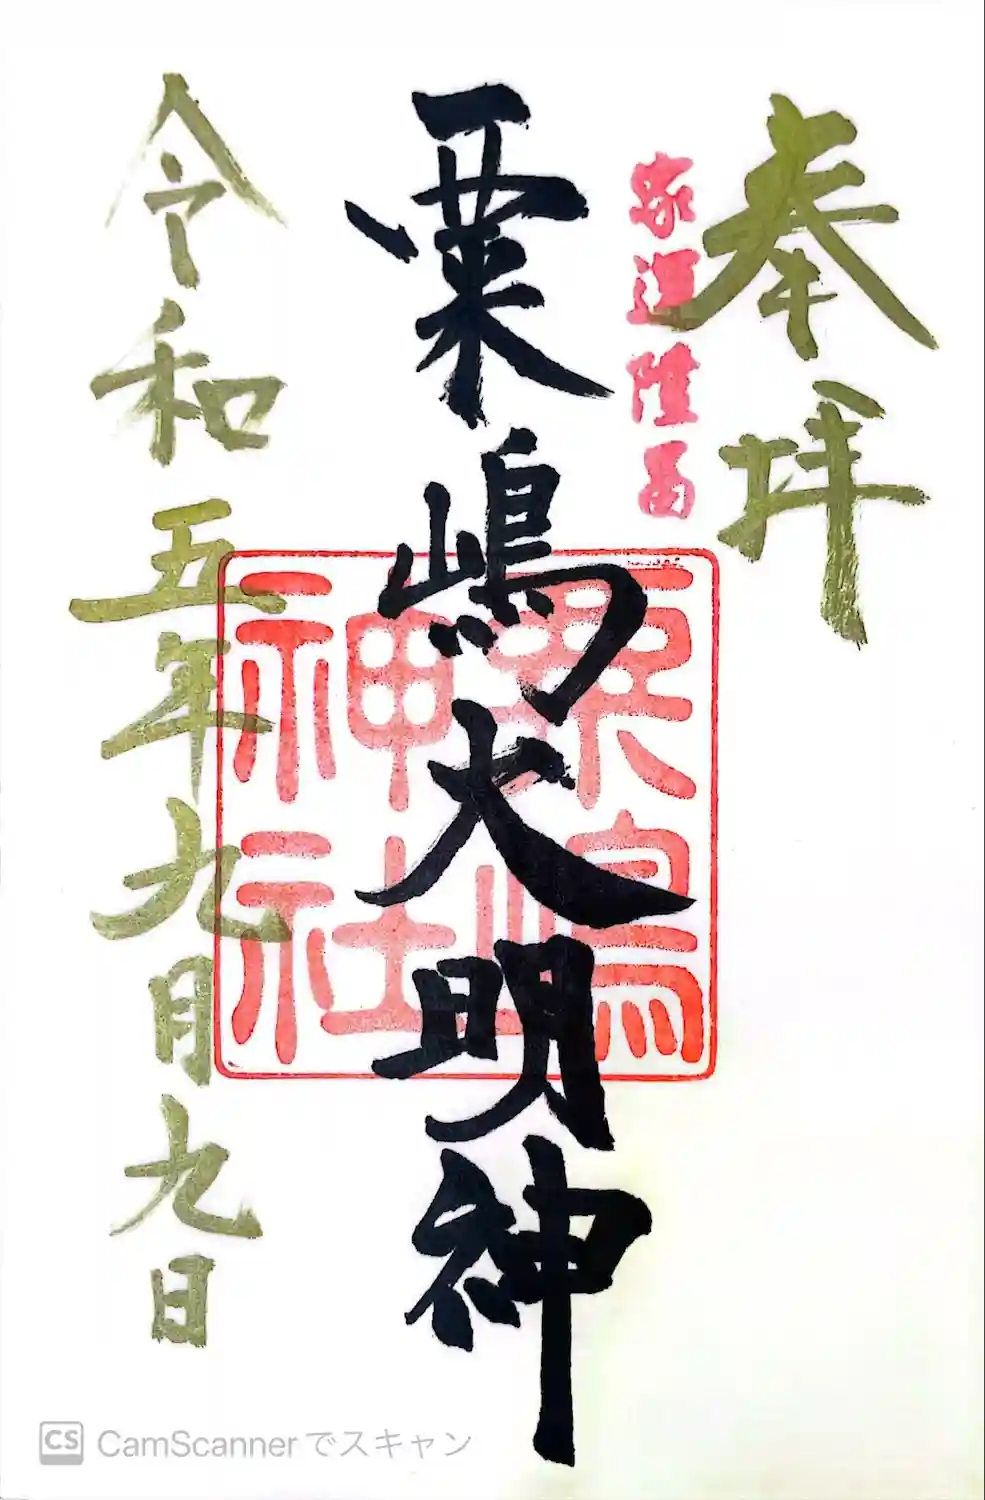 奉拝
家運隆昌
粟嶋大明神
粟嶋
神社
令和五年九月九日
CS CamScannerでスキャン